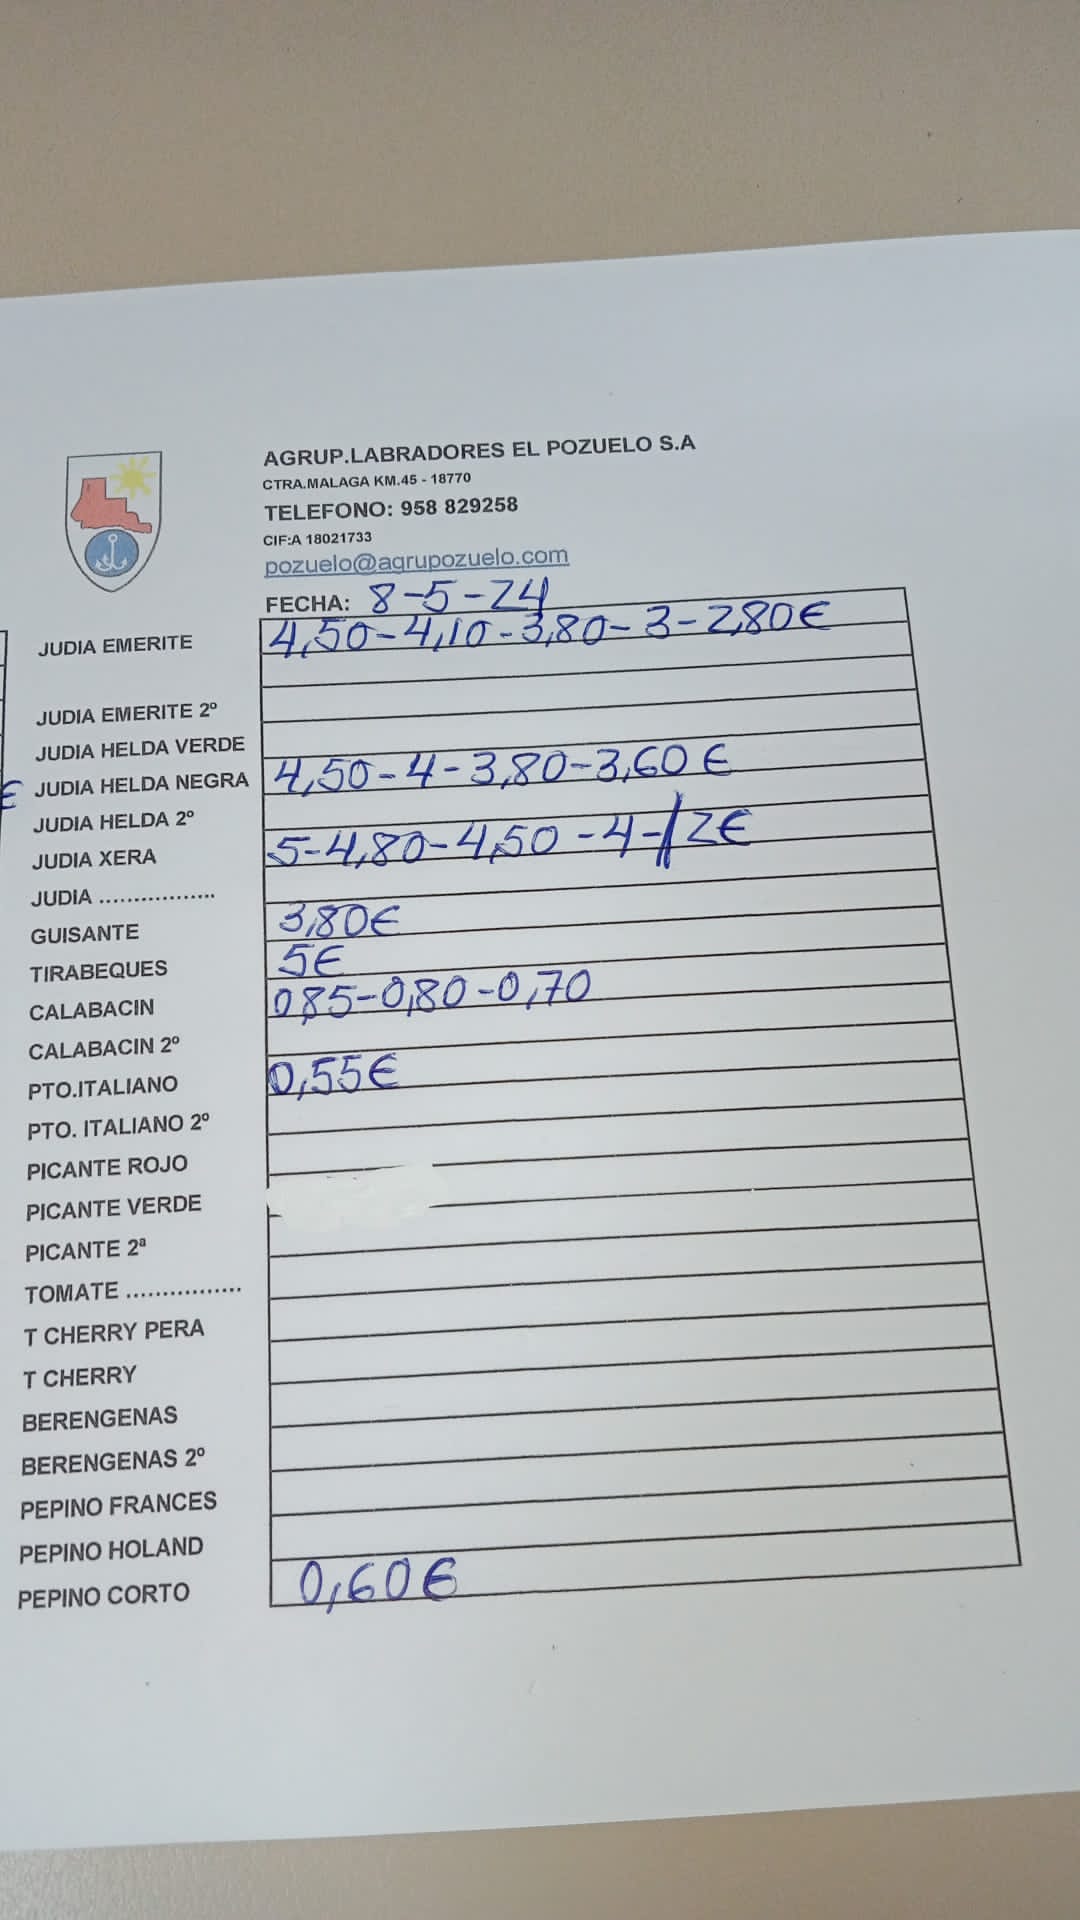 AGRUP.LABRADORES EL POZUELO S.A
CTRA.MALAGA KM.45 - 18770
TELEFONO: 958 829258
CIF:A 18021733
pozuelo@agrupozuelo.com
FECHA: 8-5-24
JUDIA EMERITE 4,50-4,10-3,80-3-2,80€
JUDIA EMERITE 2º
JUDIA HELDA VERDE
€ JUDIA HELDA NEGRA 4,50-4-3,80-3,60€
JUDIA HELDA 2º
JUDIA XERA 5-4,80-4,50-4-/2€
JUDIA .................
GUISANTE 3,80€
TIRABEQUES 5€
CALABACIN 0,85-0,80-0,70
CALABACIN 2º
PTO.ITALIANO 0,55€
PTO. ITALIANO 2º
PICANTE ROJO
PICANTE VERDE
PICANTE 2ª
TOMATE ................
T CHERRY PERA
T CHERRY
BERENGENAS
BERENGENAS 2º
PEPINO FRANCES
PEPINO HOLAND
PEPINO CORTO 0,60€